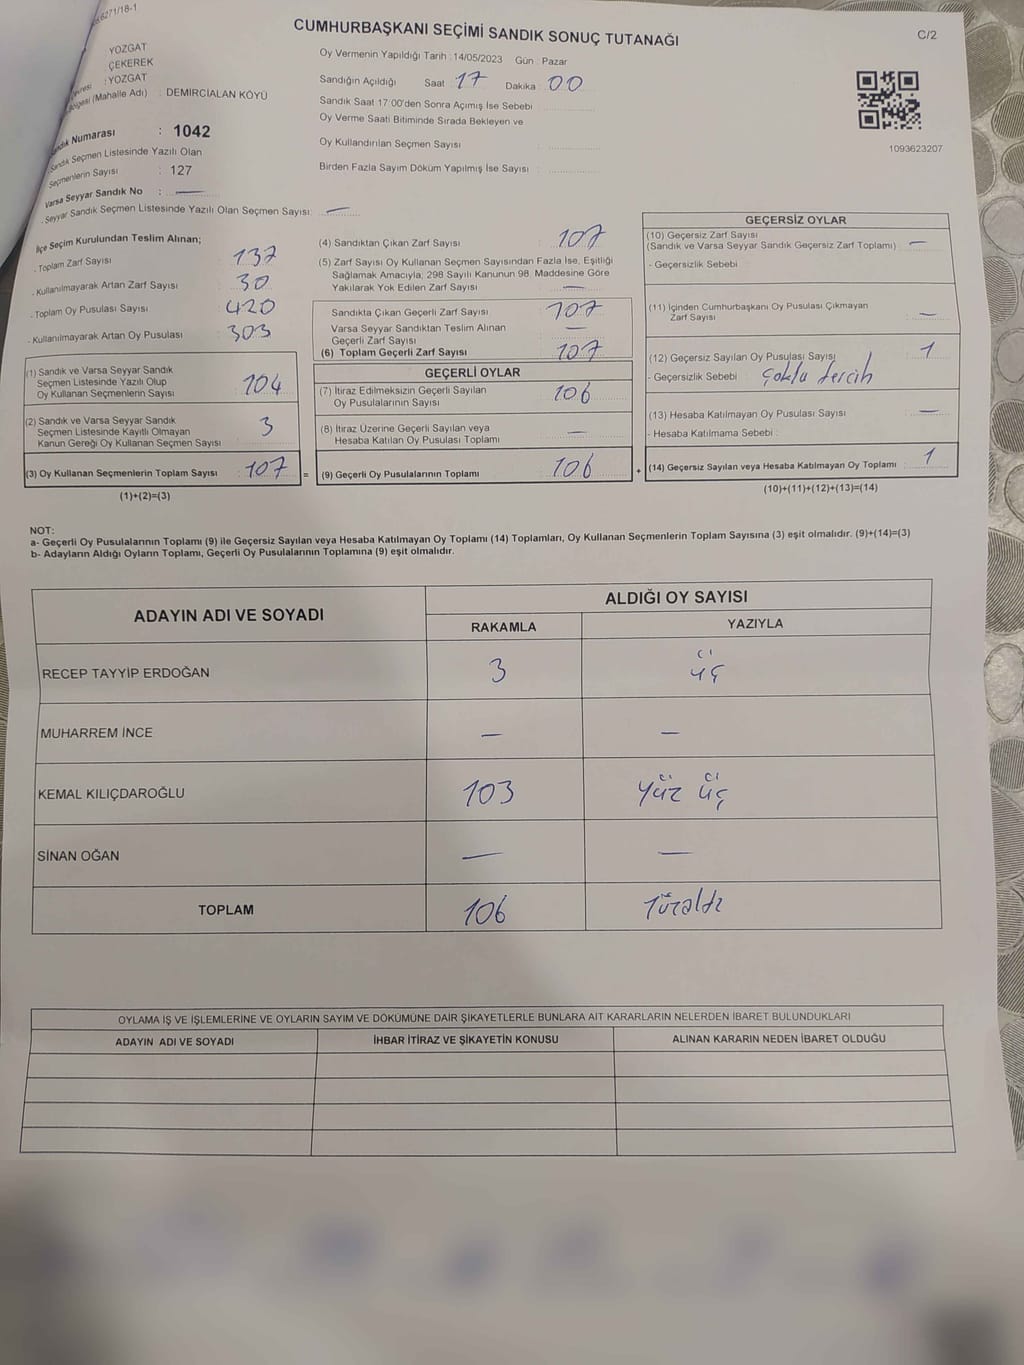 6271/18-1
CUMHURBAŞKANI SEÇİMİ SANDIK SONUÇ TUTANAĞI
C/2
: YOZGAT
ÇEKEREK
: YOZGAT
(Mahalle Adı) : DEMİRCİALAN KÖYÜ
Numarası : 1042
Sandık Seçmen Listesinde Yazılı Olan
Seçmenlerin Sayısı : 127
Varsa Seyyar Sandık No : —
Seyyar Sandık Seçmen Listesinde Yazılı Olan Seçmen Sayısı: —
Oy Vermenin Yapıldığı Tarih : 14/05/2023 Gün : Pazar
Sandığın Açıldığı Saat 17 Dakika 00
Sandık Saat 17:00'den Sonra Açımış İse Sebebi
Oy Verme Saati Bitiminde Sırada Bekleyen ve
Oy Kullandırılan Seçmen Sayısı :
Birden Fazla Sayım Döküm Yapılmış İse Sayısı :
1093623207
İlçe Seçim Kurulundan Teslim Alınan;
. Toplam Zarf Sayısı : 137
. Kullanılmayarak Artan Zarf Sayısı : 30
. Toplam Oy Pusulası Sayısı : 420
. Kullanılmayarak Artan Oy Pusulası : 303
(1) Sandık ve Varsa Seyyar Sandık
Seçmen Listesinde Yazılı Olup
Oy Kullanan Seçmenlerin Sayısı : 104
(2) Sandık ve Varsa Seyyar Sandık
Seçmen Listesinde Kayıtlı Olmayan
Kanun Gereği Oy Kullanan Seçmen Sayısı : 3
(3) Oy Kullanan Seçmenlerin Toplam Sayısı : 107 =
(1)+(2)=(3)
(4) Sandıktan Çıkan Zarf Sayısı : 107
(5) Zarf Sayısı Oy Kullanan Seçmen Sayısından Fazla İse, Eşitliği
Sağlamak Amacıyla; 298 Sayılı Kanunun 98. Maddesine Göre
Yakılarak Yok Edilen Zarf Sayısı : —
Sandıkta Çıkan Geçerli Zarf Sayısı : 107
Varsa Seyyar Sandıktan Teslim Alınan
Geçerli Zarf Sayısı : —
(6) Toplam Geçerli Zarf Sayısı : 107
GEÇERLİ OYLAR
(7) İtiraz Edilmeksizin Geçerli Sayılan
Oy Pusulalarının Sayısı : 106
(8) İtiraz Üzerine Geçerli Sayılan veya
Hesaba Katılan Oy Pusulası Toplamı : —
(9) Geçerli Oy Pusulalarının Toplamı : 106 +
GEÇERSİZ OYLAR
(10) Geçersiz Zarf Sayısı
(Sandık ve Varsa Seyyar Sandık Geçersiz Zarf Toplamı) : —
- Geçersizlik Sebebi :
(11) İçinden Cumhurbaşkanı Oy Pusulası Çıkmayan
Zarf Sayısı : —
(12) Geçersiz Sayılan Oy Pusulası Sayısı : 1
- Geçersizlik Sebebi : Çoklu tercih
(13) Hesaba Katılmayan Oy Pusulası Sayısı : —
- Hesaba Katılmama Sebebi :
(14) Geçersiz Sayılan veya Hesaba Katılmayan Oy Toplamı : 1
(10)+(11)+(12)+(13)=(14)
NOT:
a- Geçerli Oy Pusulalarının Toplamı (9) ile Geçersiz Sayılan veya Hesaba Katılmayan Oy Toplamı (14) Toplamları, Oy Kullanan Seçmenlerin Toplam Sayısına (3) eşit olmalıdır. (9)+(14)=(3)
b- Adayların Aldığı Oyların Toplamı, Geçerli Oy Pusulalarının Toplamına (9) eşit olmalıdır.
ADAYIN ADI VE SOYADI ALDIĞI OY SAYISI
RAKAMLA YAZIYLA
RECEP TAYYİP ERDOĞAN 3 üç
MUHARREM İNCE — —
KEMAL KILIÇDAROĞLU 103 yüz üç
SİNAN OĞAN — —
TOPLAM 106 Yüzaltı
OYLAMA İŞ VE İŞLEMLERİNE VE OYLARIN SAYIM VE DÖKÜMÜNE DAİR ŞİKAYETLERLE BUNLARA AİT KARARLARIN NELERDEN İBARET BULUNDUKLARI
ADAYIN ADI VE SOYADI İHBAR İTİRAZ VE ŞİKAYETİN KONUSU ALINAN KARARIN NEDEN İBARET OLDUĞU